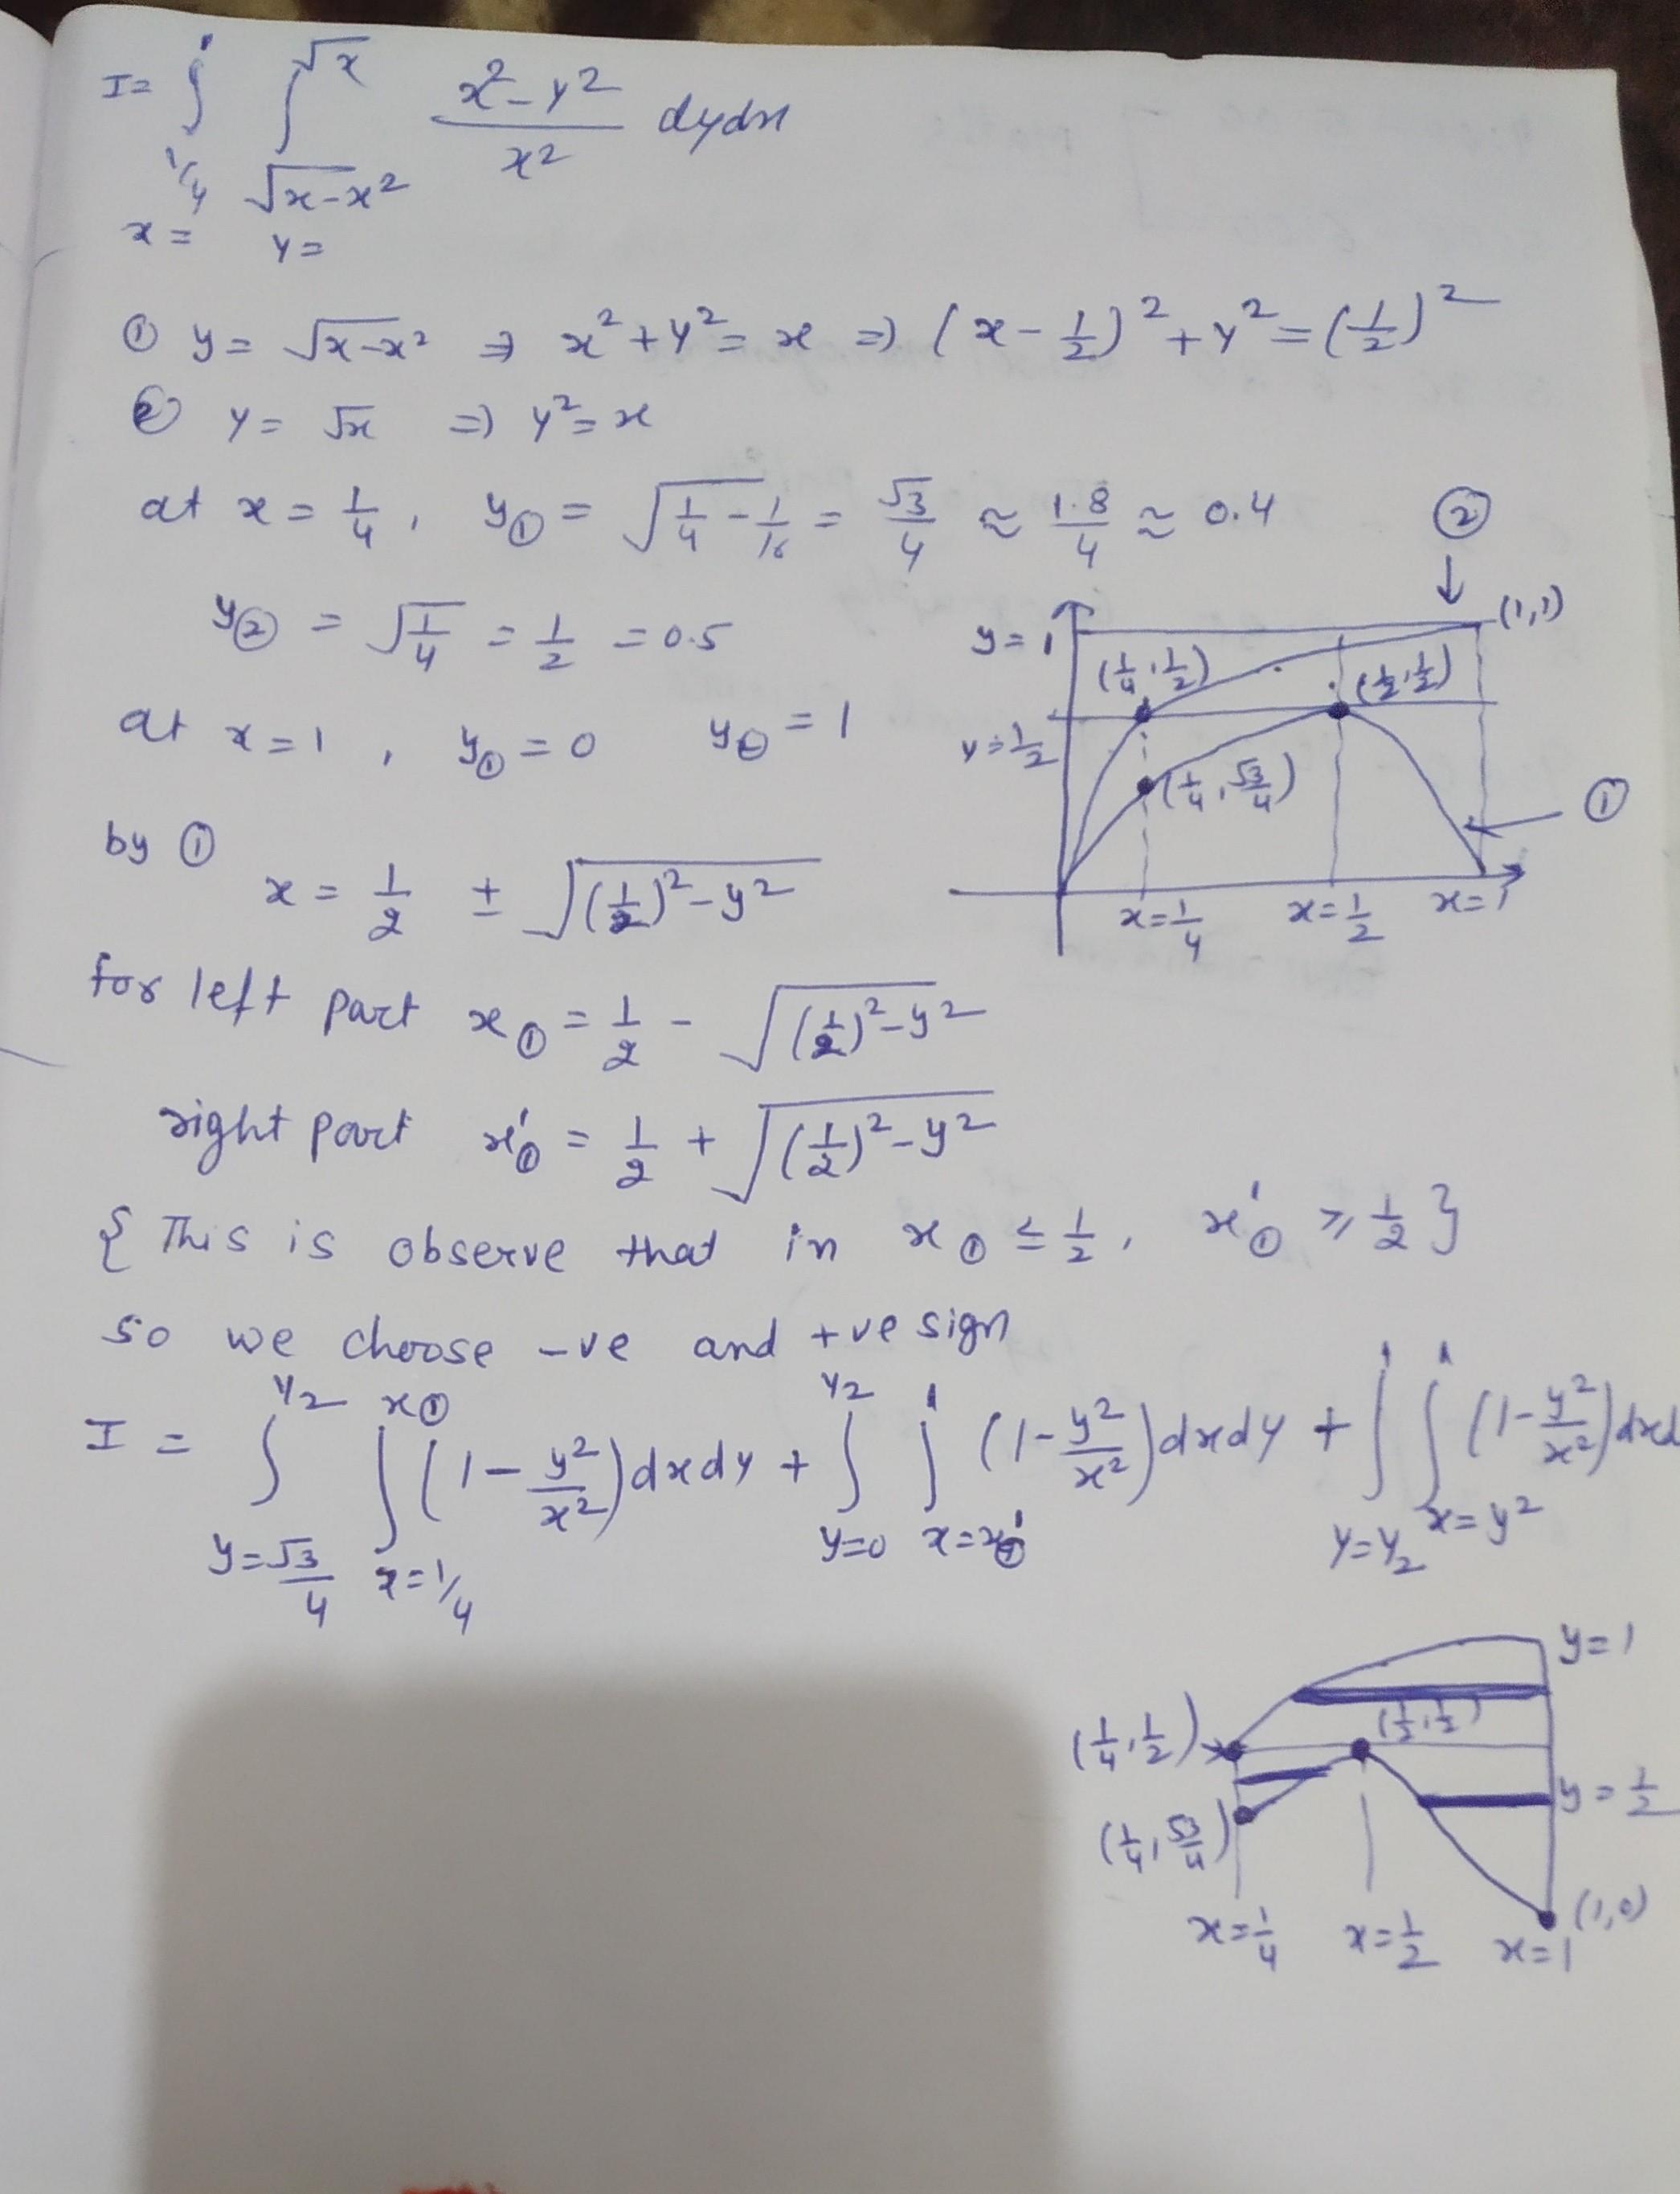 I = ∫_{x=1/4}^{1} ∫_{y=√x-x²}^{√x} x²-y²/x² dydx
① y = √x-x² ⇒ x²+y² = x ⇒ (x - 1/2)² + y² = (1/2)²
② y = √x ⇒ y² = x
at x = 1/4 , y① = √1/4 - 1/16 = √3/4 ≈ 1.8/4 ≈ 0.4
y② = √1/4 = 1/2 = 0.5
at x = 1 , y① = 0 y② = 1
②
↓
y = 1
(1,1)
(1/4, 1/2)
(1/2, 1/2)
y = 1/2
(1/4, √3/4)
①
x = 1/4
x = 1/2
x = 1
by ①
x = 1/2 ± √(1/2)² - y²
for left part x① = 1/2 - √(1/2)² - y²
right part x'① = 1/2 + √(1/2)² - y²
{ This is observe that in x① ≤ 1/2 , x'① ≥ 1/2 }
so we choose -ve and +ve sign
I = ∫_{y=√3/4}^{1/2} ∫_{x=1/4}^{x①} (1 - y²/x²) dxdy + ∫_{y=0}^{1/2} ∫_{x=x'①}^{1} (1 - y²/x²) dxdy + ∫_{y=1/2}^{1} ∫_{x=y²}^{1} (1 - y²/x²) dxd
y = 1
(1/4, 1/2)
(1/2, 1/2)
y = 1/2
(1/4, √3/4)
(1,0)
x = 1/4
x = 1/2
x = 1